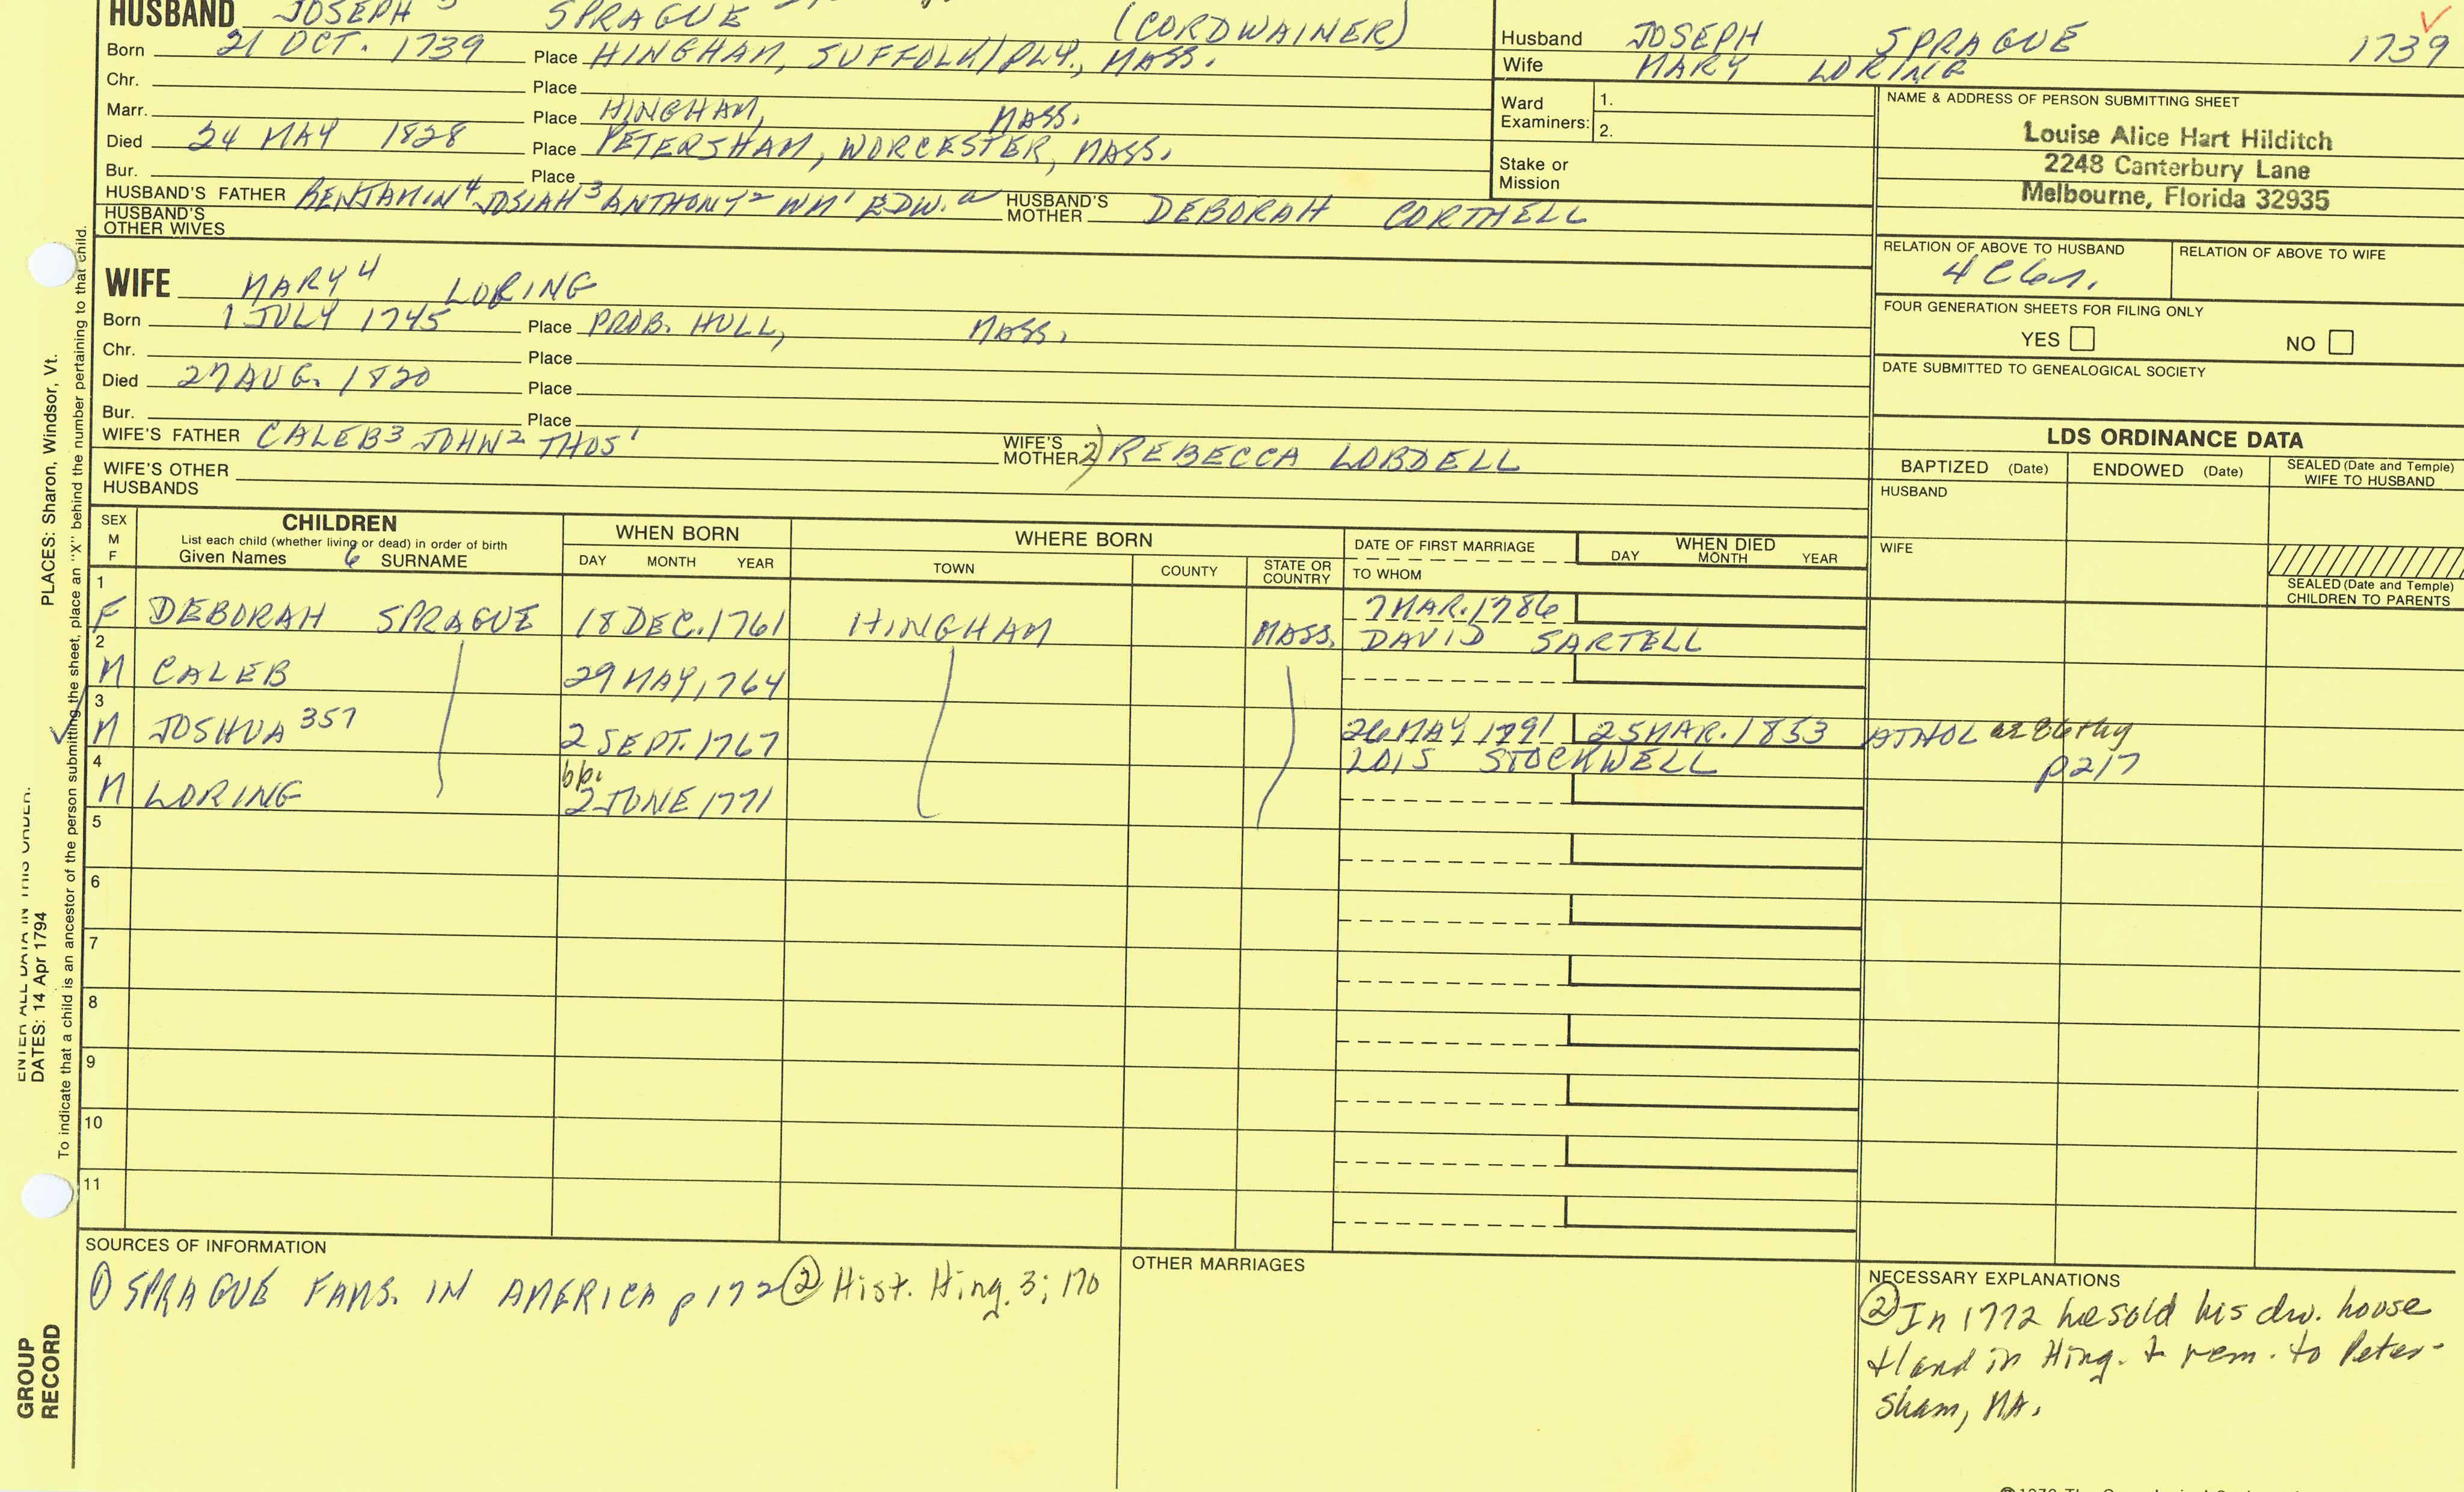 HUSBAND JOSEPH 5 SPRAGUE (CORDWAINER)
Born 21 OCT. 1739 Place HINGHAM, SUFFOLK/PLY., MASS.
Chr. Place
Marr. Place HINGHAM, MASS.
Died 24 MAY 1828 Place PETERSHAM, WORCESTER, MASS.
Bur. Place
HUSBAND'S FATHER BENJAMIN4 JOSIAH3 ANTHONY2 WM1 EDW.a HUSBAND'S MOTHER DEBORAH CORTHELL
HUSBAND'S OTHER WIVES
Husband JOSEPH SPRAGUE 1739
Wife MARY LORING
Ward Examiners: 1.
2.
Stake or Mission
NAME & ADDRESS OF PERSON SUBMITTING SHEET
Louise Alice Hart Hilditch
2248 Canterbury Lane
Melbourne, Florida 32935
RELATION OF ABOVE TO HUSBAND RELATION OF ABOVE TO WIFE
FOUR GENERATION SHEETS FOR FILING ONLY
YES NO
DATE SUBMITTED TO GENEALOGICAL SOCIETY
WIFE MARY4 LORING
Born 1 JULY 1745 Place PROB. HULL, MASS.
Chr. Place
Died 27 AUG. 1820 Place
Bur. Place
WIFE'S FATHER CALEB3 JOHN2 THOS1 WIFE'S MOTHER 2) REBECCA LOBDELL
WIFE'S OTHER HUSBANDS
LDS ORDINANCE DATA
BAPTIZED (Date) ENDOWED (Date) SEALED (Date and Temple) WIFE TO HUSBAND
HUSBAND
WIFE
SEALED (Date and Temple) CHILDREN TO PARENTS
SEX M F CHILDREN WHEN BORN WHERE BORN DATE OF FIRST MARRIAGE WHEN DIED
List each child (whether living or dead) in order of birth
Given Names 6 SURNAME DAY MONTH YEAR TOWN COUNTY STATE OR COUNTRY TO WHOM DAY MONTH YEAR
1 F DEBORAH SPRAGUE 18 DEC. 1761 HINGHAM MASS. 7 MAR. 1786
DAVID SARTELL
2 M CALEB 29 MAY, 1764
3 M JOSHUA 357 2 SEPT. 1767 26 MAY 1791 25 MAR. 1853 ATHOL
LOIS STOCKWELL p217
4 M LORING bp. 2 JUNE 1771
5
6
7
8
9
10
11
SOURCES OF INFORMATION
① SPRAGUE FAMS. IN AMERICA p 172 ② Hist. Hing. 3; 170
OTHER MARRIAGES
NECESSARY EXPLANATIONS
② In 1772 he sold his dw. house
+ land in Hing. & rem. to Peter-
sham, MA.
PLACES: Sharon, Windsor, Vt.
ENTER ALL DATA IN THIS ORDER:
DATES: 14 Apr 1794
To indicate that a child is an ancestor of the person submitting the sheet, place an "X" behind the number pertaining to that child.
GROUP
RECORD